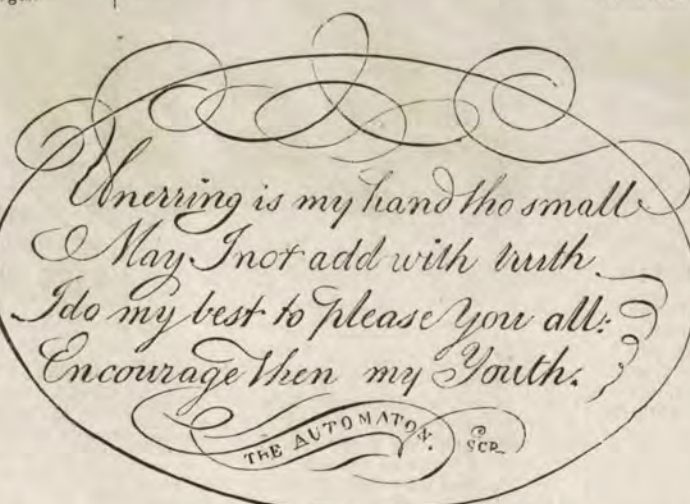 Unerring is my hand tho small
May I not add with truth
I do my best to please You all:
Encourage then my Youth.
THE AUTOMATON.
SCR